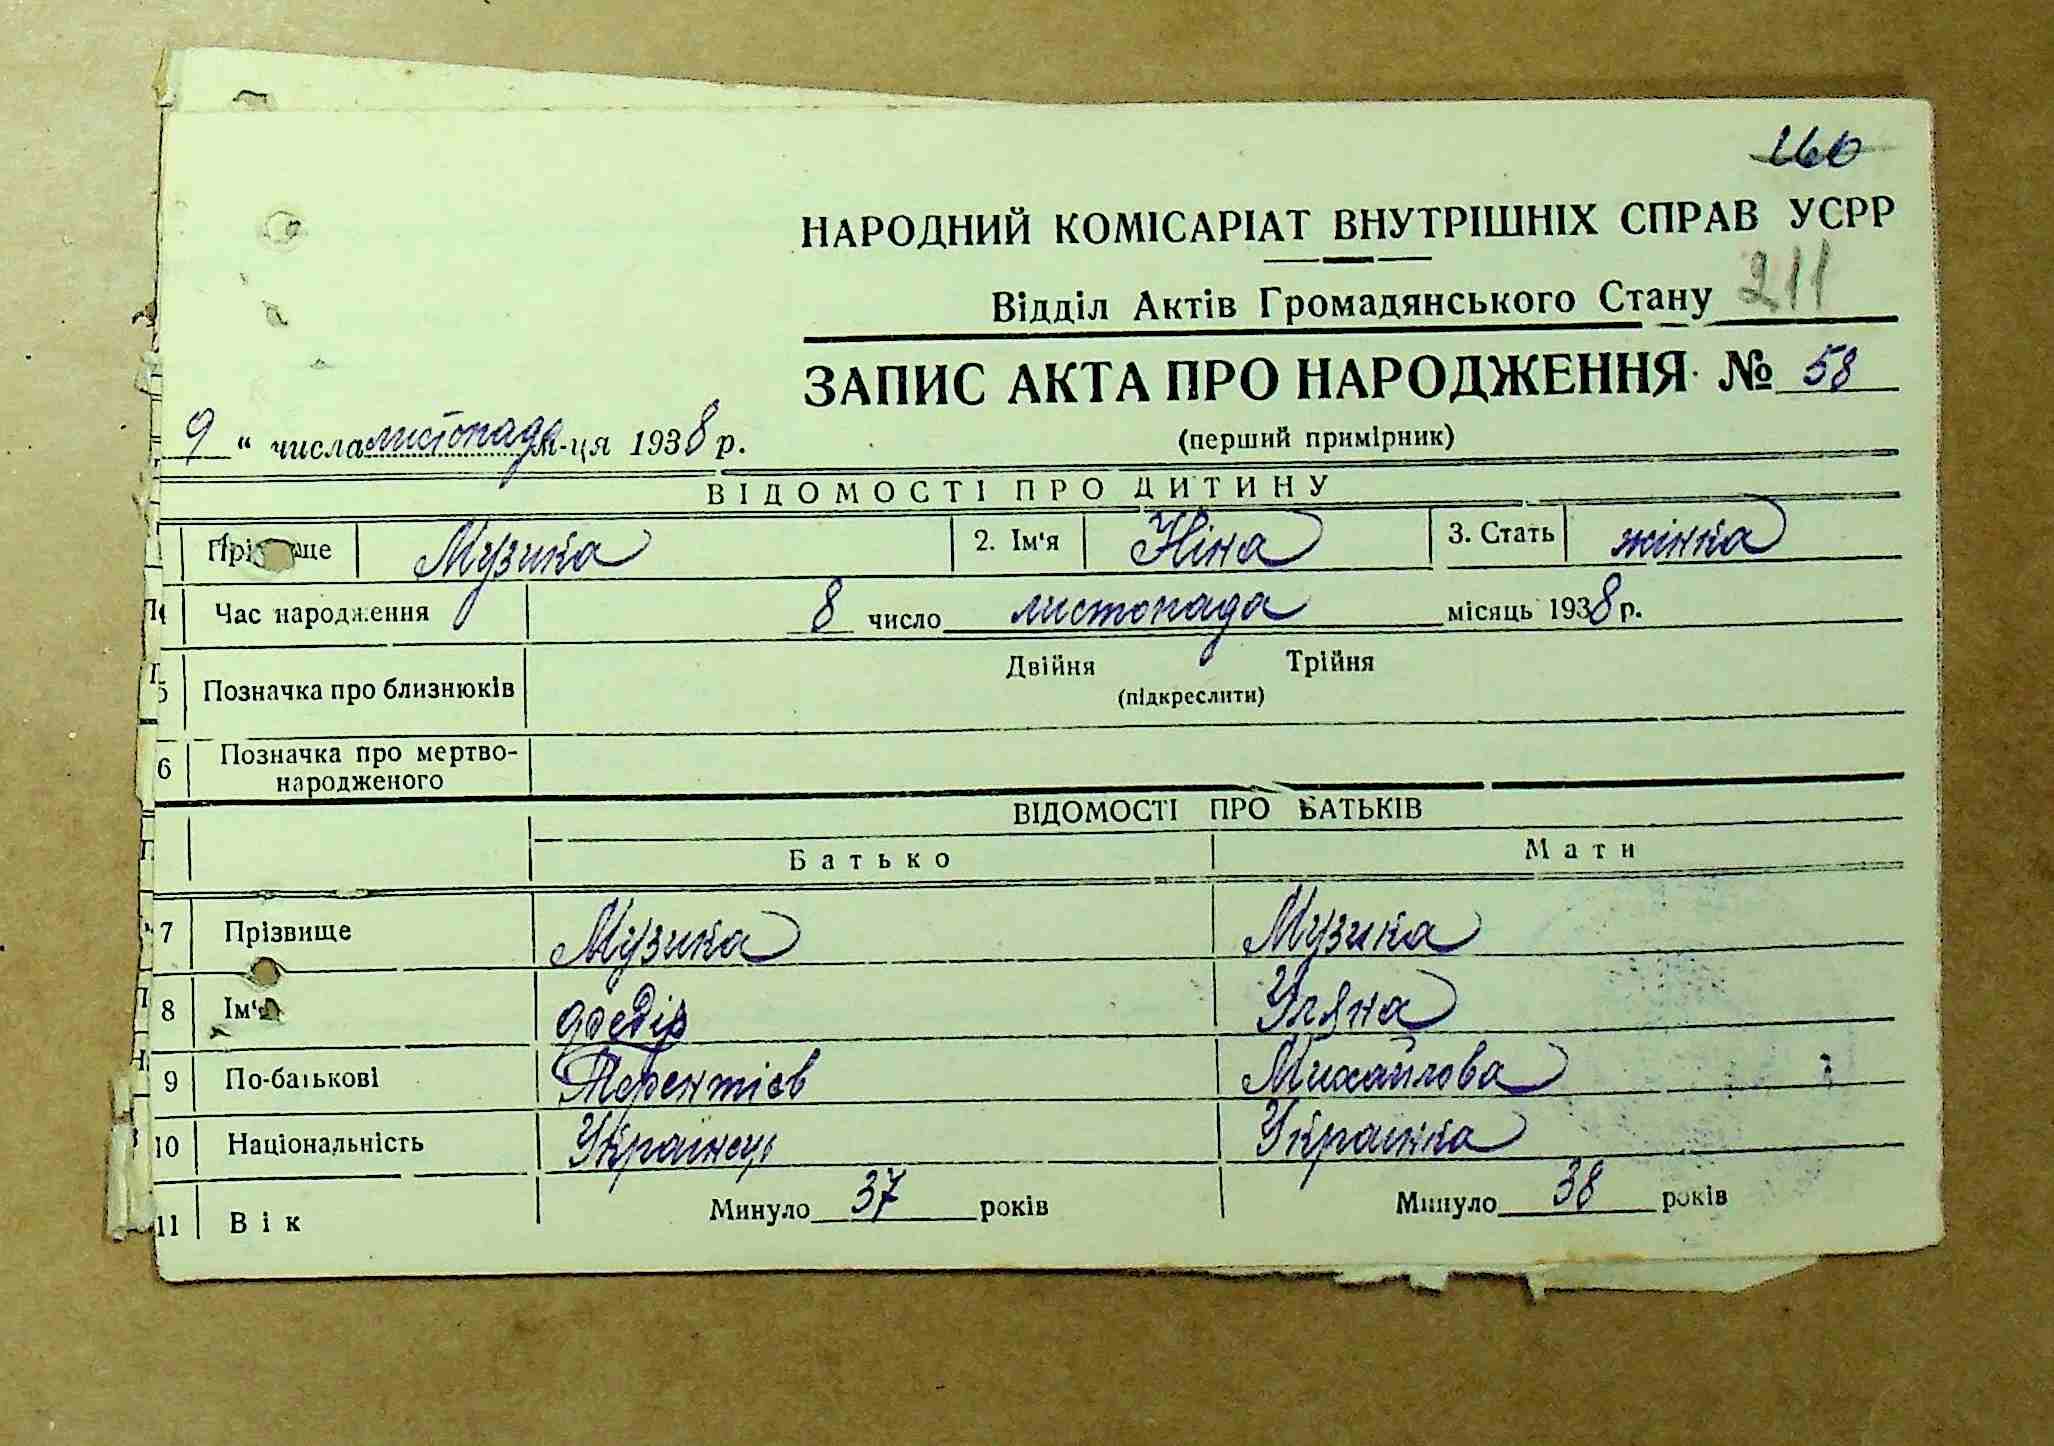 260
НАРОДНИЙ КОМІСАРІАТ ВНУТРІШНІХ СПРАВ УСРР
Відділ Актів Громадянського Стану 211
ЗАПИС АКТА ПРО НАРОДЖЕННЯ № 58
9 “ числа листопада м-ця 1938 р. (перший примірник)
ВІДОМОСТІ ПРО ДИТИНУ
Прізвище Музика 2. Ім'я Ніна 3. Стать жінка
4 Час народження 8 число листопада місяць 1938 р.
5 Позначка про близнюків Двійня Трійня
(підкреслити)
6 Позначка про мертво-
народженого
ВІДОМОСТІ ПРО БАТЬКІВ
Батько Мати
7 Прізвище Музика Музика
8 Ім'я Федір Уляна
9 По-батькові Терентієв Михайлова
10 Національність Українець Українка
11 Вік Минуло 37 років Минуло 38 років